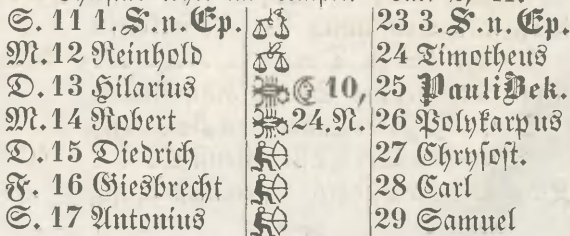 S. 11 1. S n. Ep. 23 3. S n. Ep.
M. 12 Reinhold 24 Timotheus
D. 13 Hilarius 10, 25 Pauli Bek.
M. 14 Robert 24. N. 26 Polykarpus
D. 15 Diedrich 27 Chrysost.
F. 16 Giesbrecht 28 Carl
S. 17 Antonius 29 Samuel